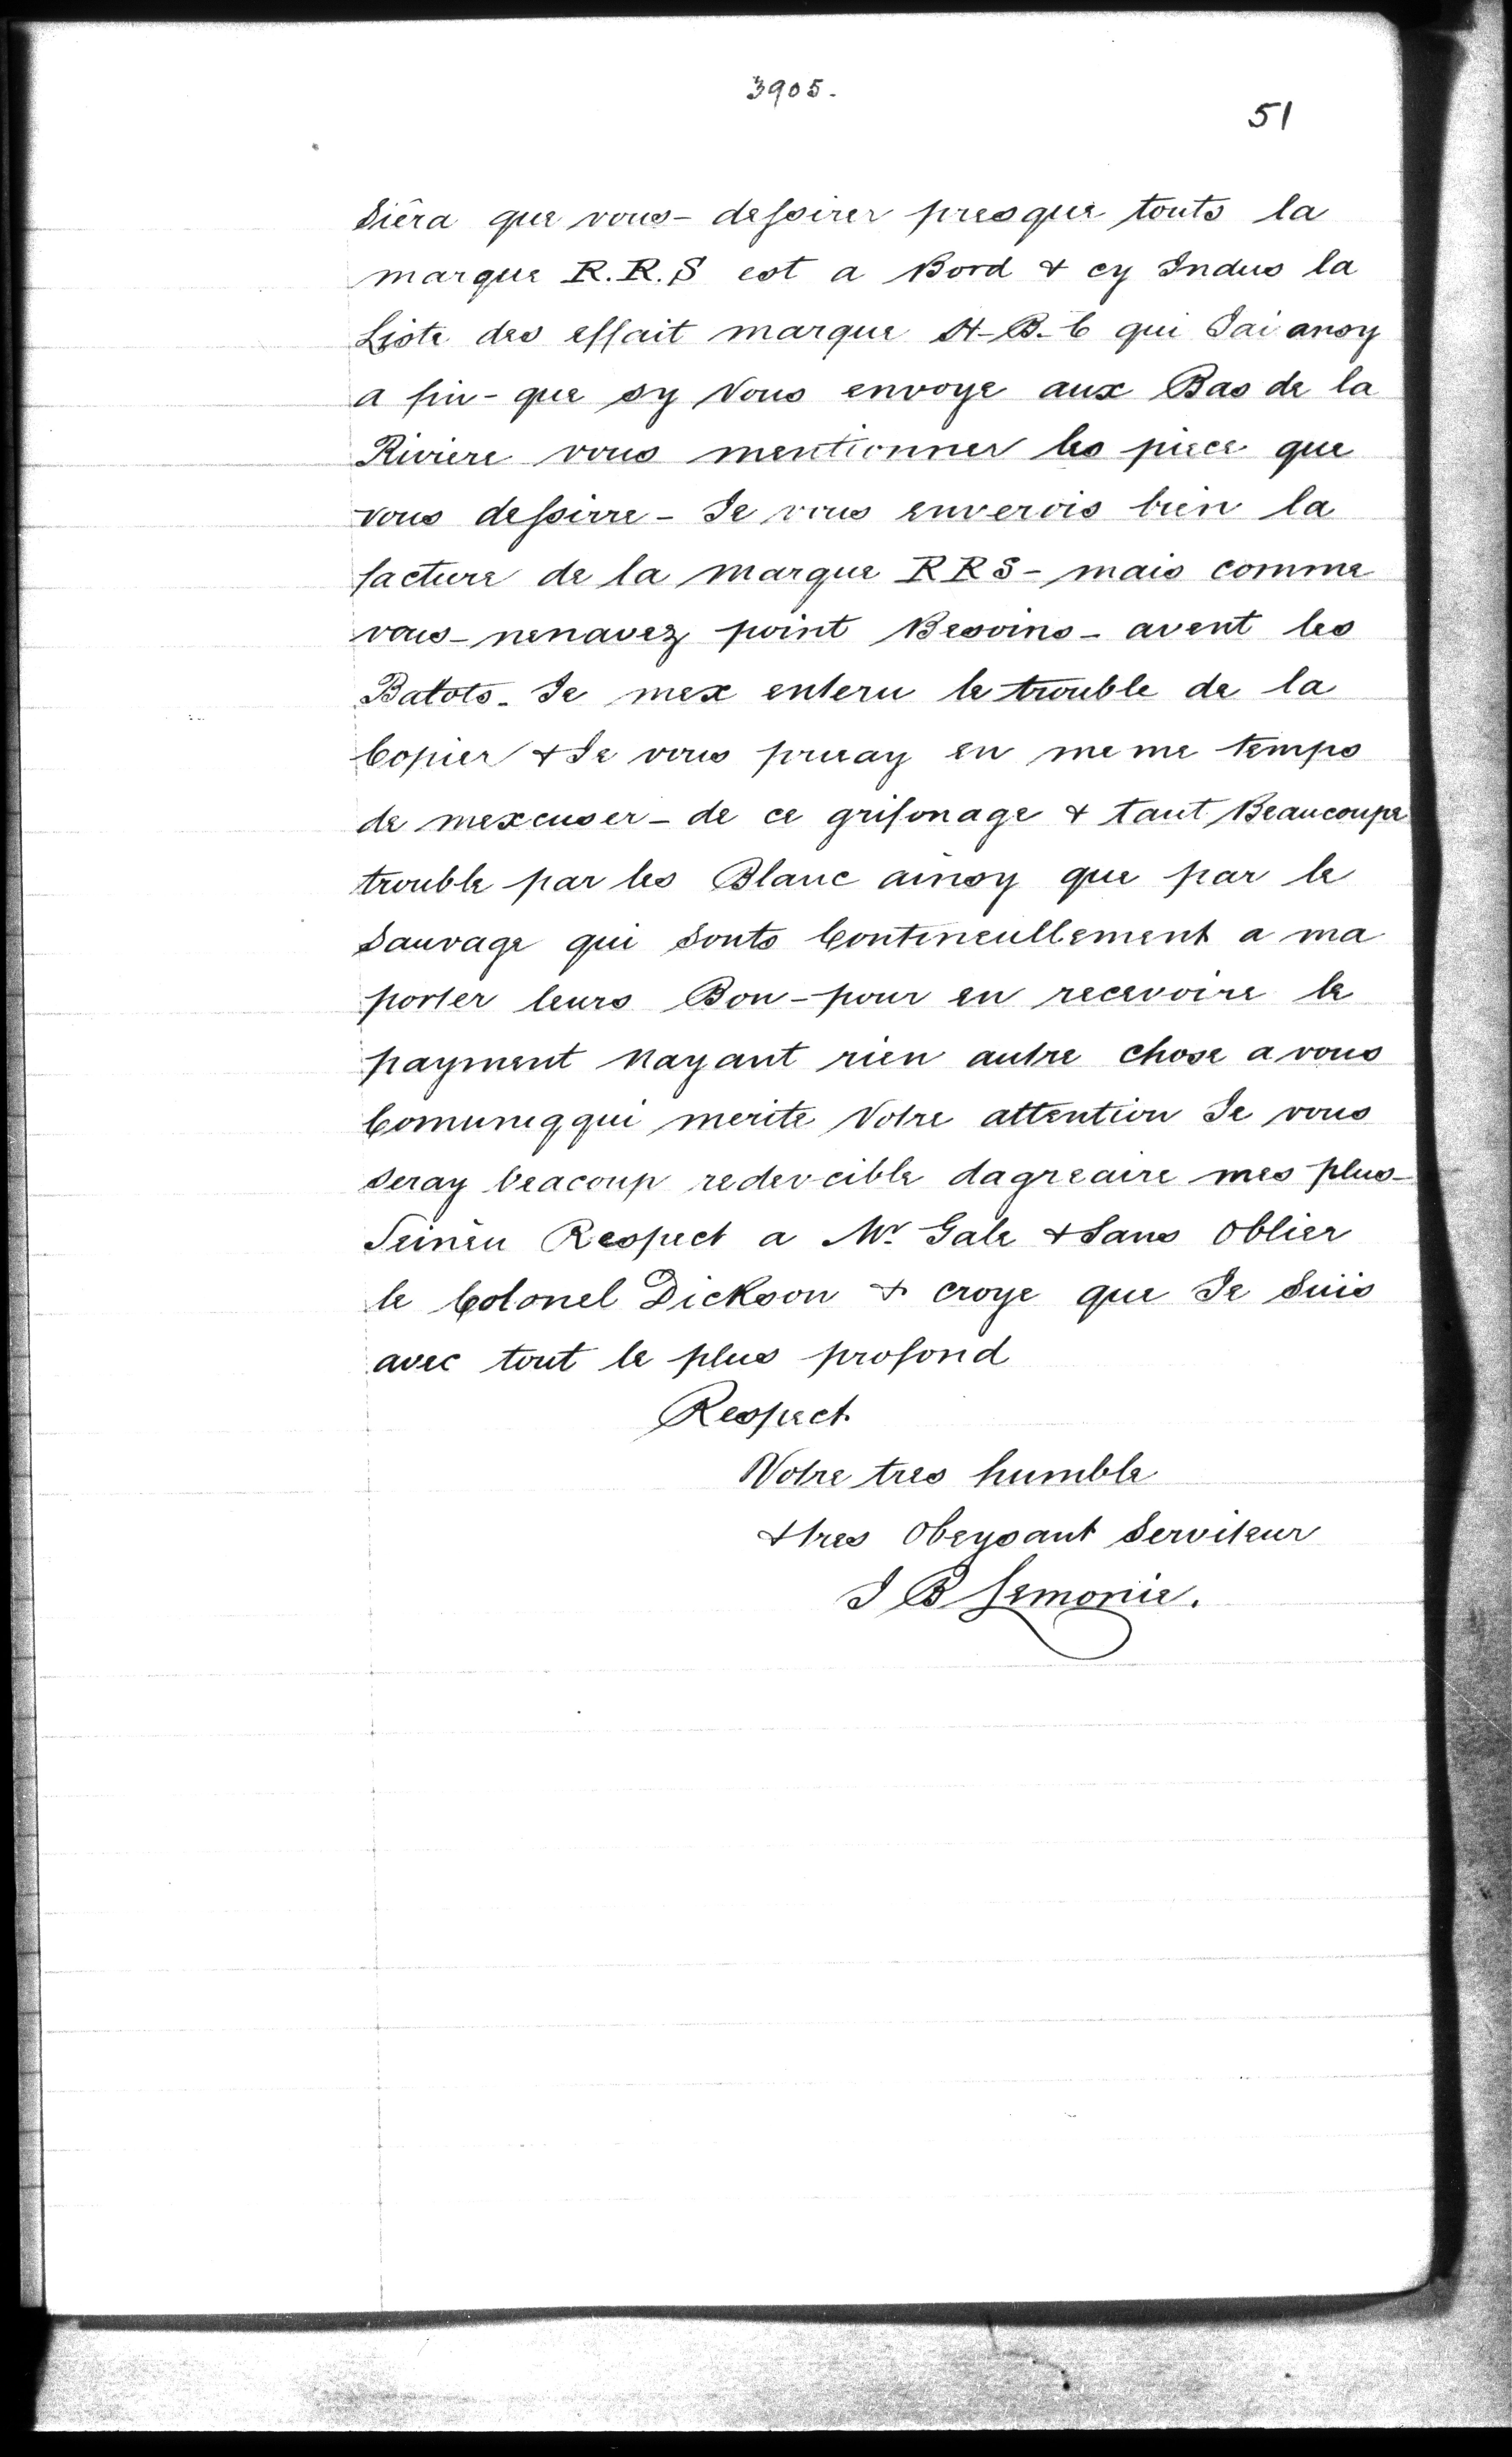 3905.
51
Siêra que vous - dessirer presque touts la
marque R.R.S est a Bord & cy Indus la
Liste des effait marque H-B-C qui Jai ansy
a fin - que sy Vous envoye aux Bas de la
Riviere vous mentionner les piece que
vous dessirre - Je vous enverois bien la
facture de la marque RRS - mais comme
vous - nenavez point Besoins - avent les
Batots - Je mex enteru le trouble de la
Copier & Je vous pruay en meme temps
de mexcuser - de ce grifonage & tant Beaucoupe
trouble par les Blanc ainsy que par le
Sauvage qui sonts Contineullement a ma
porter leurs Bon - pour en recevoire le
payment Nayant rien autre chose a vous
Comuniqqui merite Votre attention Je vous
seray beacoup redevcible dagreaire mes plus -
Seinêu Respect a Mr Gale & Sans Oblier
le Colonel Dickson & croye que Je Suis
avec tout le plus profond
Respect
Votre tres humble
& tres Obeysant Serviteur
J B Lemonie.